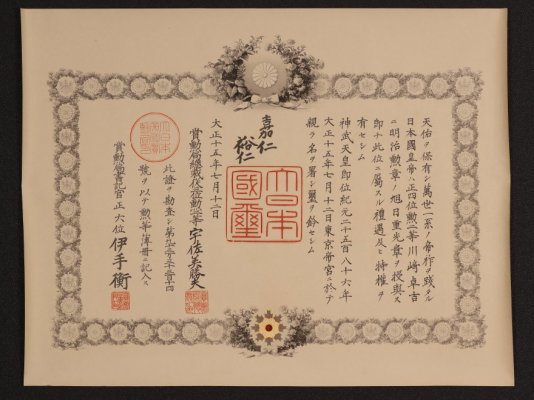 天佑ヲ保有シ萬世一系ノ帝祚ヲ踐タル
日本國皇帝ハ正四位勲二等川﨑卓吉
ニ明治勲章ノ旭日重光章ヲ授與ス
即チ此位ニ屬スル禮遇及ヒ特權ヲ
有セシム
神武天皇即位紀元二千五百八十六年
大正十五年七月十二日東京帝宮ニ於テ
親ラ名ヲ署シ璽ヲ鈐セシム
嘉仁
裕仁
大日本
國璽
大正十五年七月十二日
賞勲局總裁從三位勲二等宇佐美勝夫
此證ヲ勘査シ第
號ヲ以テ勲二等簿册ニ記入ス
賞勲局書記官正六位伊手衡